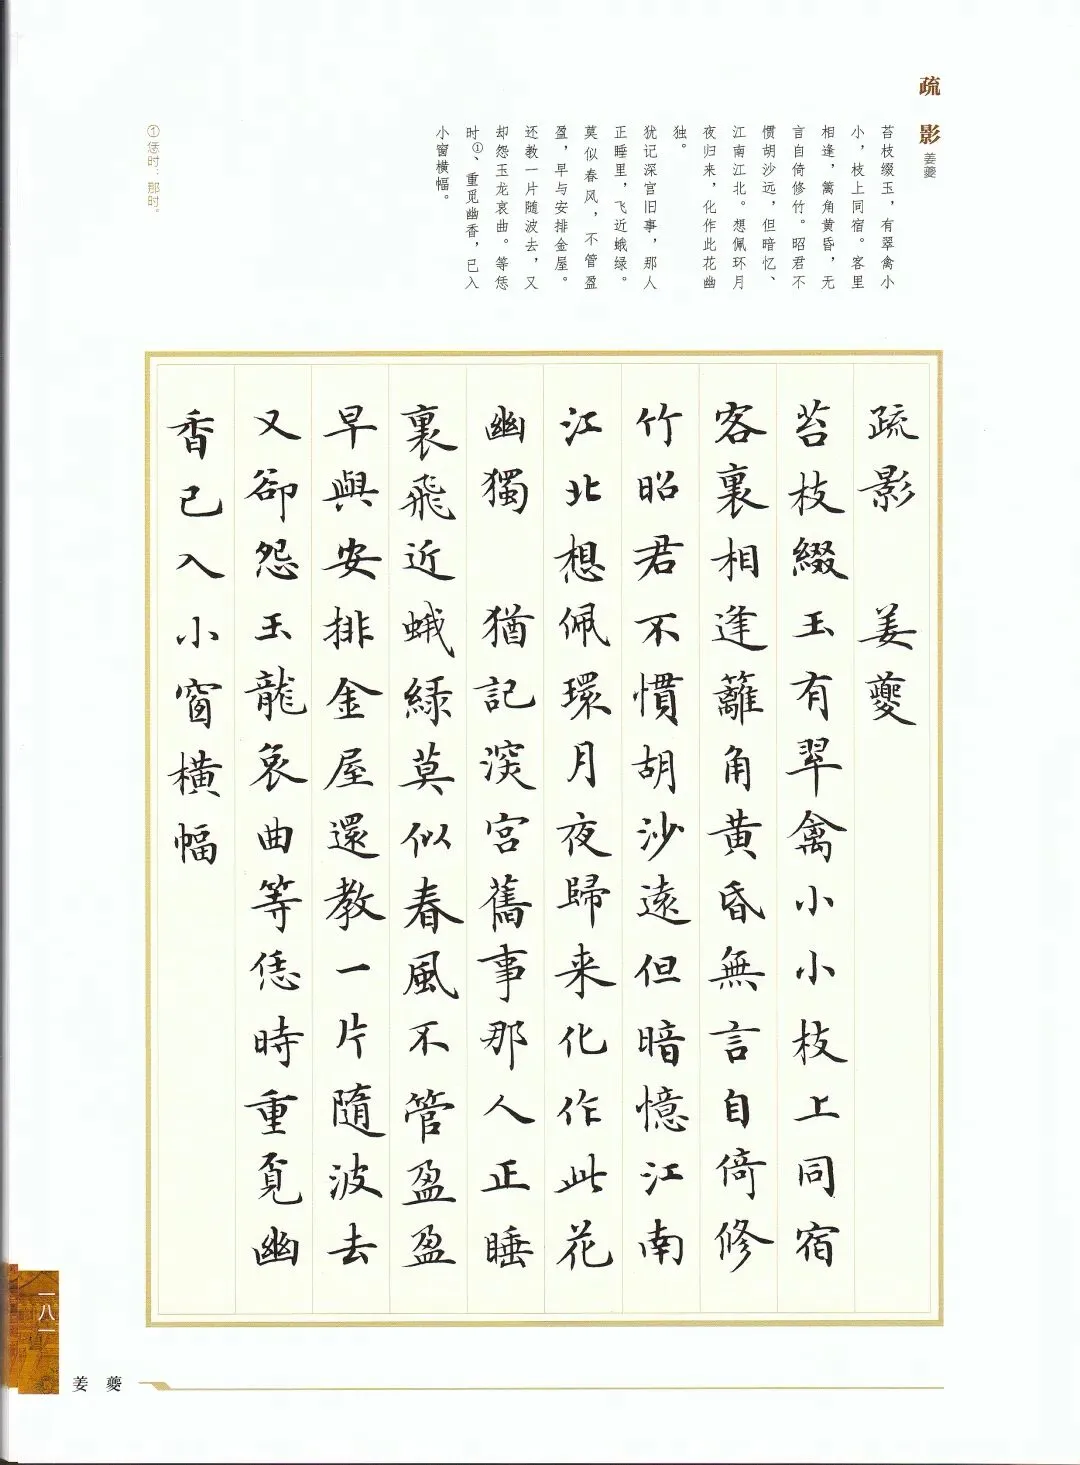 疏影
姜夔
苔枝缀玉，有翠禽小
小，枝上同宿。客里
相逢，篱角黄昏，无
言自倚修竹。昭君不
惯胡沙远，但暗忆、
江南江北。想佩环月
夜归来，化作此花幽
独。
犹记深宫旧事，那人
正睡里，飞近蛾绿。
莫似春风，不管盈
盈，早与安排金屋。
还教一片随波去，又
却怨玉龙哀曲。等恁
时①、重觅幽香，已入
小窗横幅。
①恁时：那时。
疏影 姜夔
苔枝綴玉有翠禽小小枝上同宿
客裏相逢籬角黄昏無言自倚修
竹昭君不慣胡沙遠但暗憶江南
江北想佩環月夜歸来化作此花
幽獨 猶記深宮舊事那人正睡
裏飛近蛾緑莫似春風不管盈盈
早與安排金屋還教一片隨波去
又卻怨玉龍哀曲等恁時重覓幽
香已入小窗橫幅
一八一
姜夔